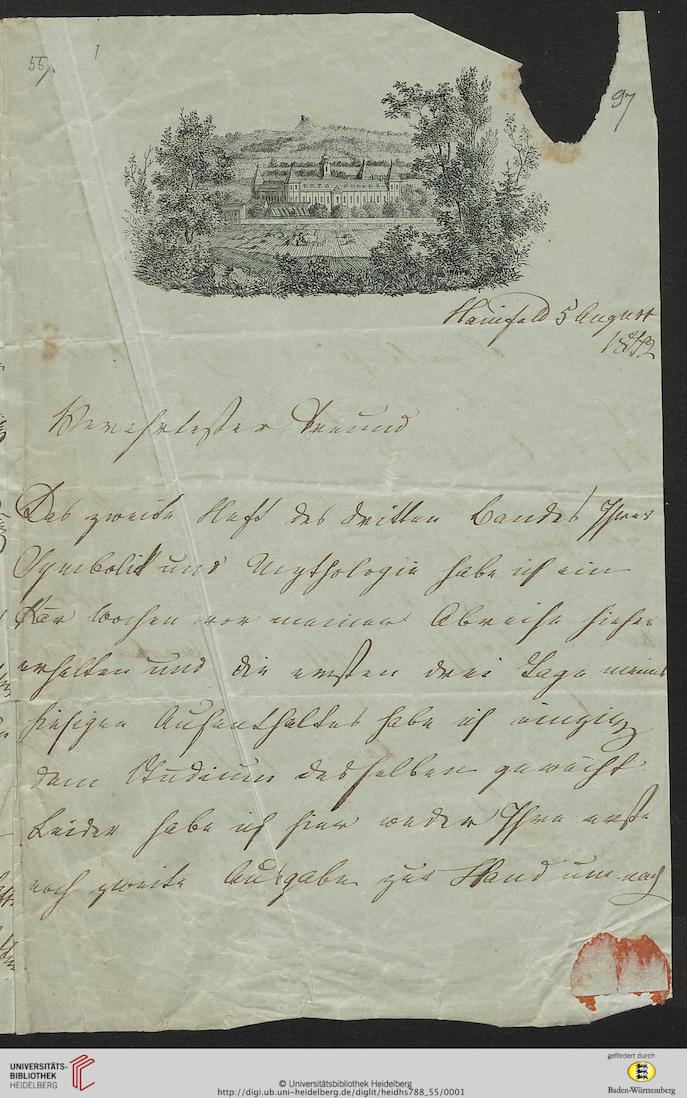 55,
1
97
Hainfeld 5 August
1842
Verehrtester Freund
Das zweite Heft des dritten Bandes Ihrer
Symbolik und Mythologie habe ich ein
Paar Wochen vor meiner Abreise hieher
erhalten und die ersten drei Tage meines
hiesigen Aufenthaltes habe ich einzig
dem Studium desselben geweiht
Leider habe ich hier weder Ihre erste
noch zweite Ausgabe zur Hand um nach
UNIVERSITÄTS-
BIBLIOTHEK
HEIDELBERG
© Universitätsbibliothek Heidelberg
http://digi.ub.uni-heidelberg.de/diglit/heidhs788_55/0001
gefördert durch
Baden-Württemberg